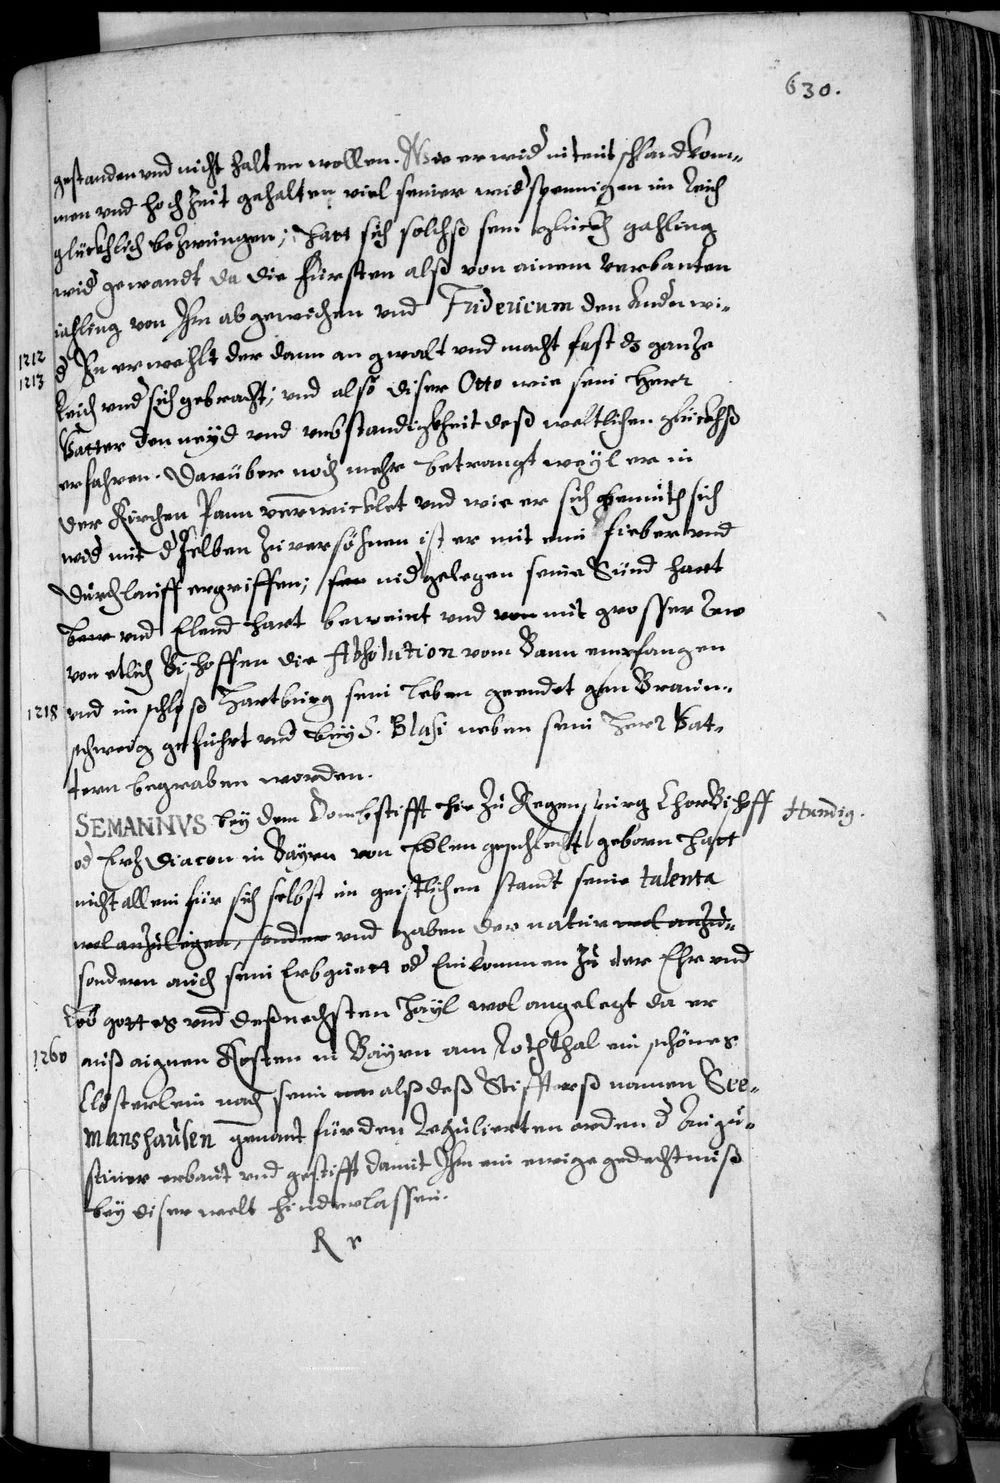 630.
gestanden und nicht halten wollen. Wie er wid in teutschland kom-
men und hochzeit gehalten viel seiner widspennigen im Reich
glücklich bezwungen; hatt sich solchß sein glückh gahling
wid gewandt da die Fürsten alß von ainem verbanten
iahling von Ihm abgewichen und Fridericum den Andn wi-
1212 d In erwehlt der dann an gwalt und macht fast dz ganze
1213 Reich und sich gebracht; und also diser Otto wie sein Herr
Vatter den neyd und unbstandigkheit deß weltlichen glückhß
erfahren. Darüber noch mehr betrangt weyl er in
der Kirchen Pann verwicklet und wie er sich bemüth sich
wid mit dselben zu versöhnen ist er mit eim fieber und
Durchlauff ergriffen; nidgelegen seine Sünd hatt
und Elend hart beweint und mit grosser rew
von etlich Bischoffen die Absolution vom Bann empfangen
1218 und im schloß Hartburg sein leben geendet gen Braun-
schweig geführt und bey S. Blasi neben seim Herr Vat-
tern begraben worden.
SEMANNVS bey dem Dombstifft hie zu Regenspurg ChorBischoff Hundig.
od Erzdiacon in Bayrn von Edlen geschlecht geborn hatt
nicht allein für sich selbst im geistlichen standt seine talenta
wolanzulegen, sonder und gaben der natur wol anzu-
sondern auch sein Erbguett od Einkommen zu der Ehr und
Lob gottes und deßnechsten Hayl wol angelegt da er
1260 auß aignen Kosten in Bayrn am Rothtal ein schönes
Clösterlein nach seim alß deß Stiffterß namen See-
manshausen genant für den Regulierten orden d Augu-
stiner erbaut und gestifft damit Ihm ein ewige gedechtnuß
bey diser welt hinderlassen.
R r